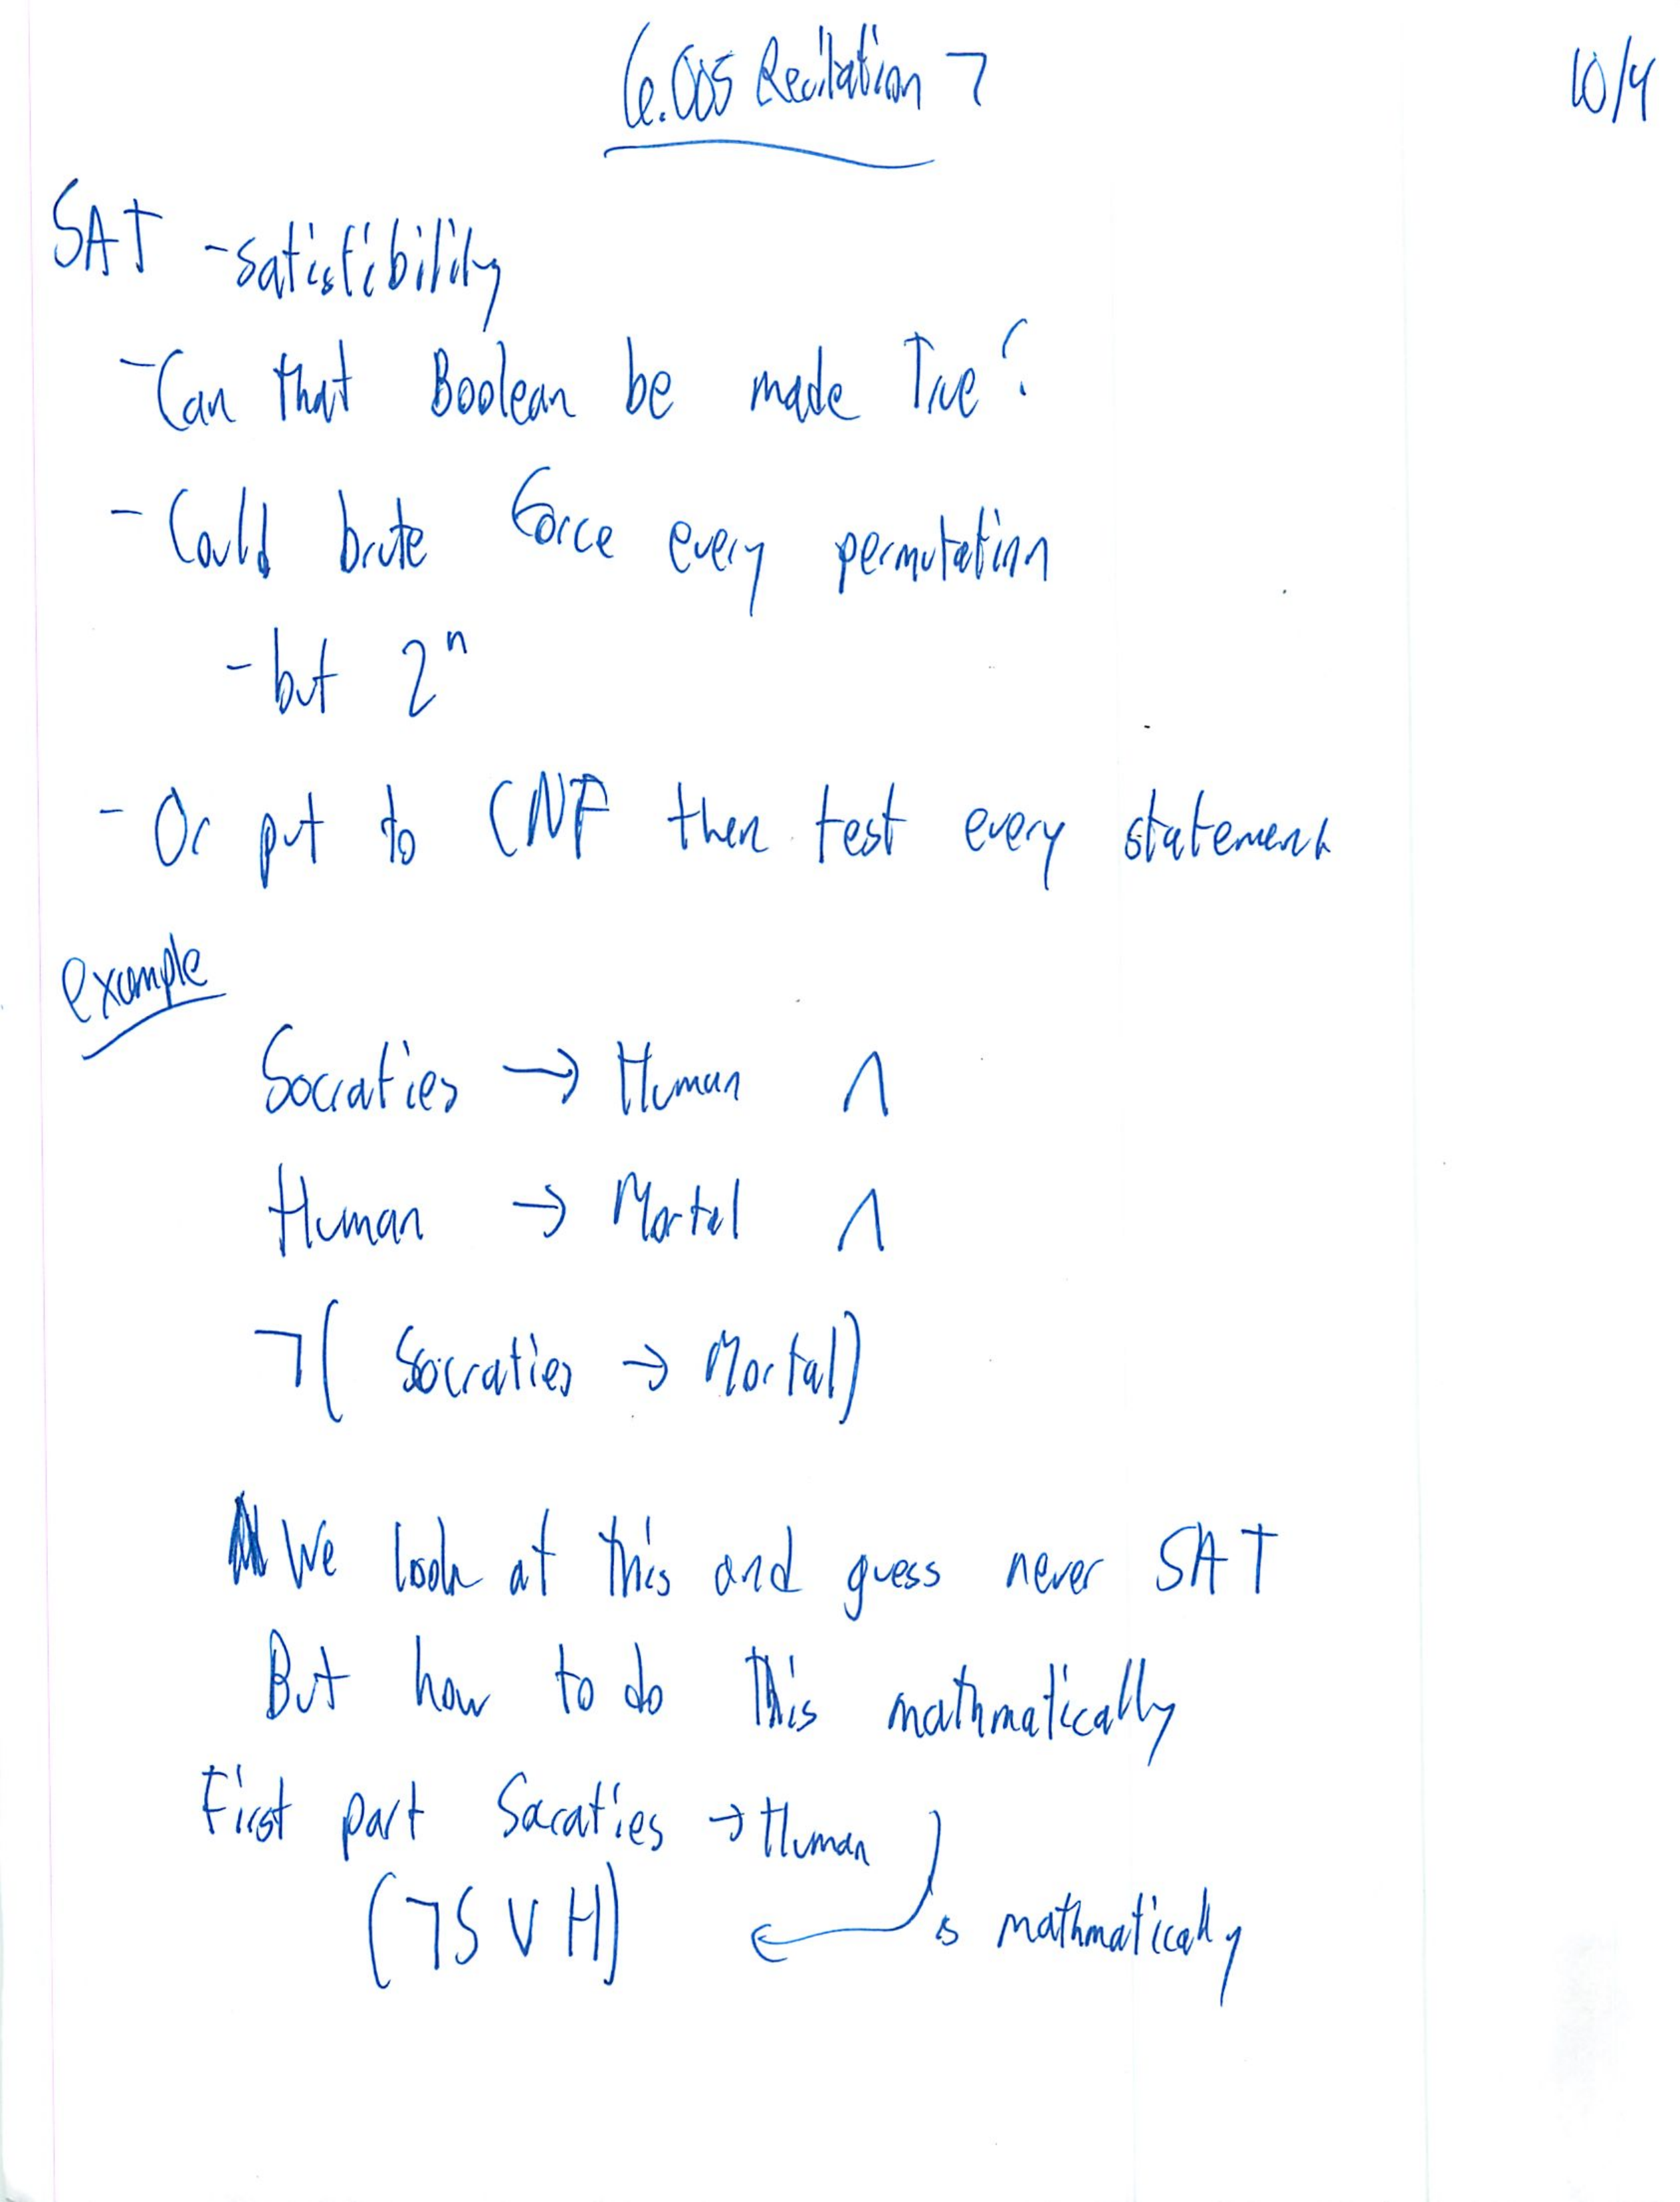 6.005 Recitation 7
10/4
SAT - satisfibility
- Can that Boolean be made True?
- Could brute force every permutation
- but 2^n
- Or put to CNF then test every statement
example
Socraties → Human ∧
Human → Mortal ∧
¬( Socraties → Mortal)
We look at this and guess never SAT
But how to do this mathmatically
First part Socraties → Human
(¬S ∨ H) is mathmatically